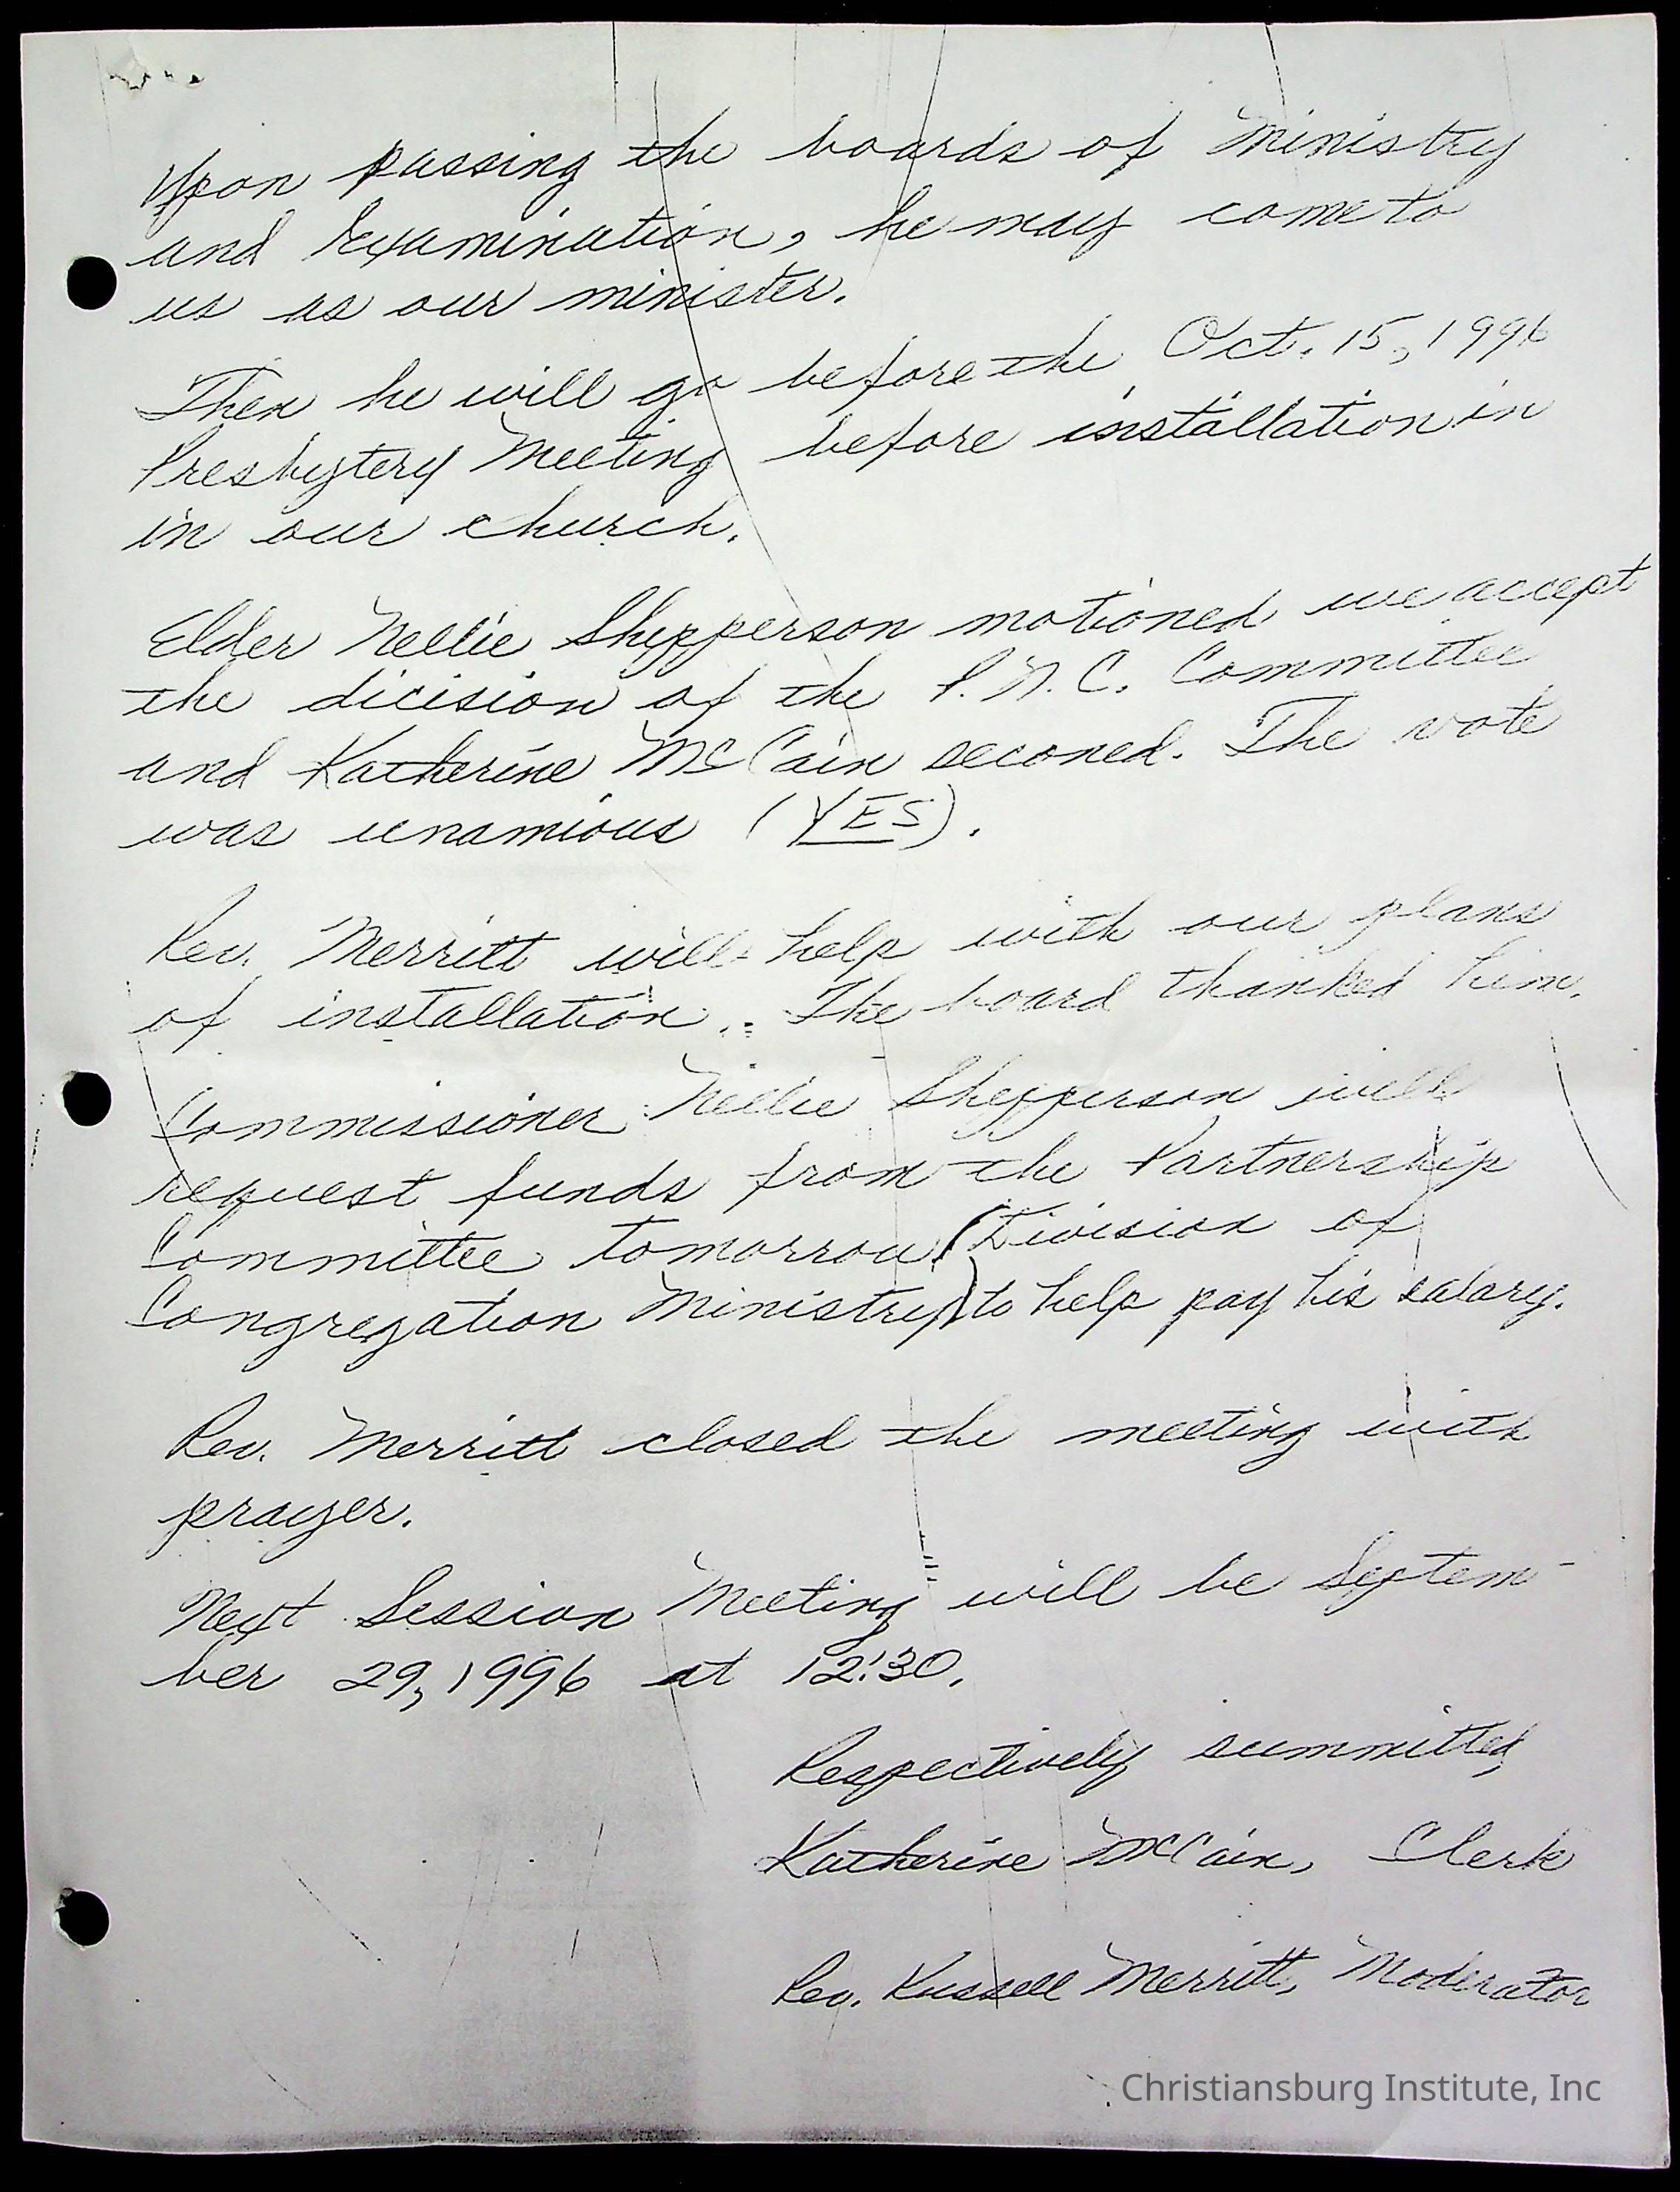 Upon passing the boards of Ministry
and Examination, he may come to
us as our minister.
Then he will go before the Oct. 15, 1996
Presbytery Meeting before installation in
in our church.
Elder Nellie Shepperson motioned we accept
the dicision of the P. N. C. Committee
and Katherine McCain seconed. The vote
was unamious (YES).
Rev. Merritt will help with our plans
of installation. The board thanked him.
Commissioner Nellie Shepperson will
request funds from the Partnership
Committee tomorrow (Division of
Congregation Ministry) to help pay his salary.
Rev. Merritt closed the meeting with
prayer.
Next Session Meeting will be Septem-
ber 29, 1996 at 12:30.
Respectively summitted,
Katherine McCain, Clerk
Rev. Russell Merritt, Moderator
Christiansburg Institute, Inc